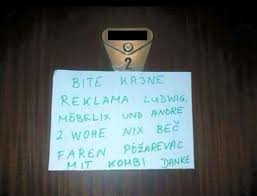 2
BITE KAJNE
REKLAMA LUDWIG,
MÖBELIX UND ANDRE
2 WOHE NIX BEČ
FAREN POŽAREVAC
MIT KOMBI DANKE